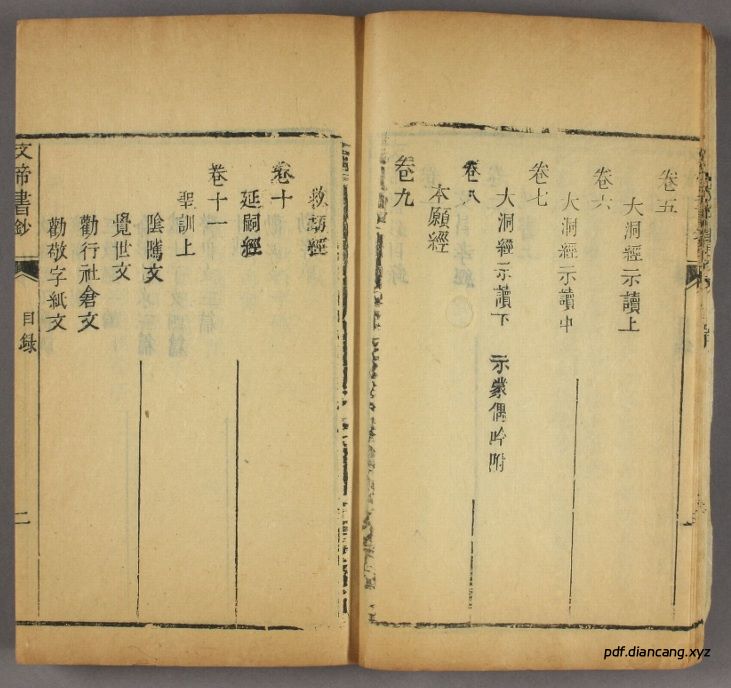 卷五
大洞經示讀上
卷六
大洞經示讀中
卷七
大洞經示讀下 示蒙偶吟附
卷八
本願經
卷九
救劫經
卷十
延嗣經
卷十一
聖訓上
陰隲文
覺世文
勸行社倉文
勸敬字紙文
文帝書鈔
目錄
二
pdf.diancang.xyz